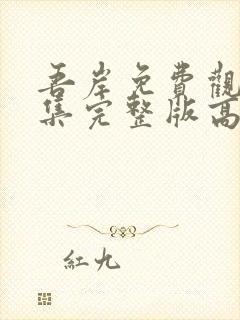 吾岸免費觀
集完整版高
紅九